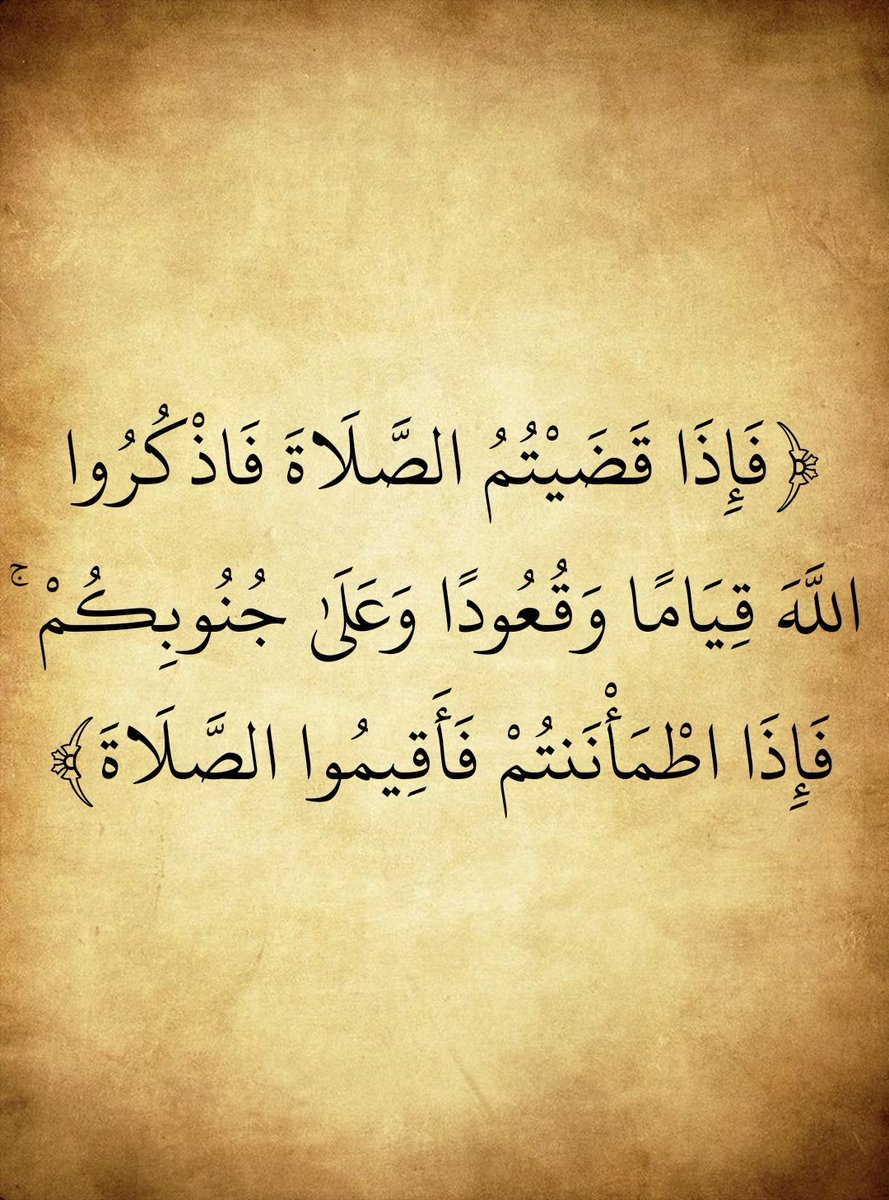 ﴿فَإِذَا قَضَيْتُمُ الصَّلَاةَ فَاذْكُرُوا
اللَّهَ قِيَامًا وَقُعُودًا وَعَلَىٰ جُنُوبِكُمْ ۚ
فَإِذَا اطْمَأْنَنتُمْ فَأَقِيمُوا الصَّلَاةَ﴾